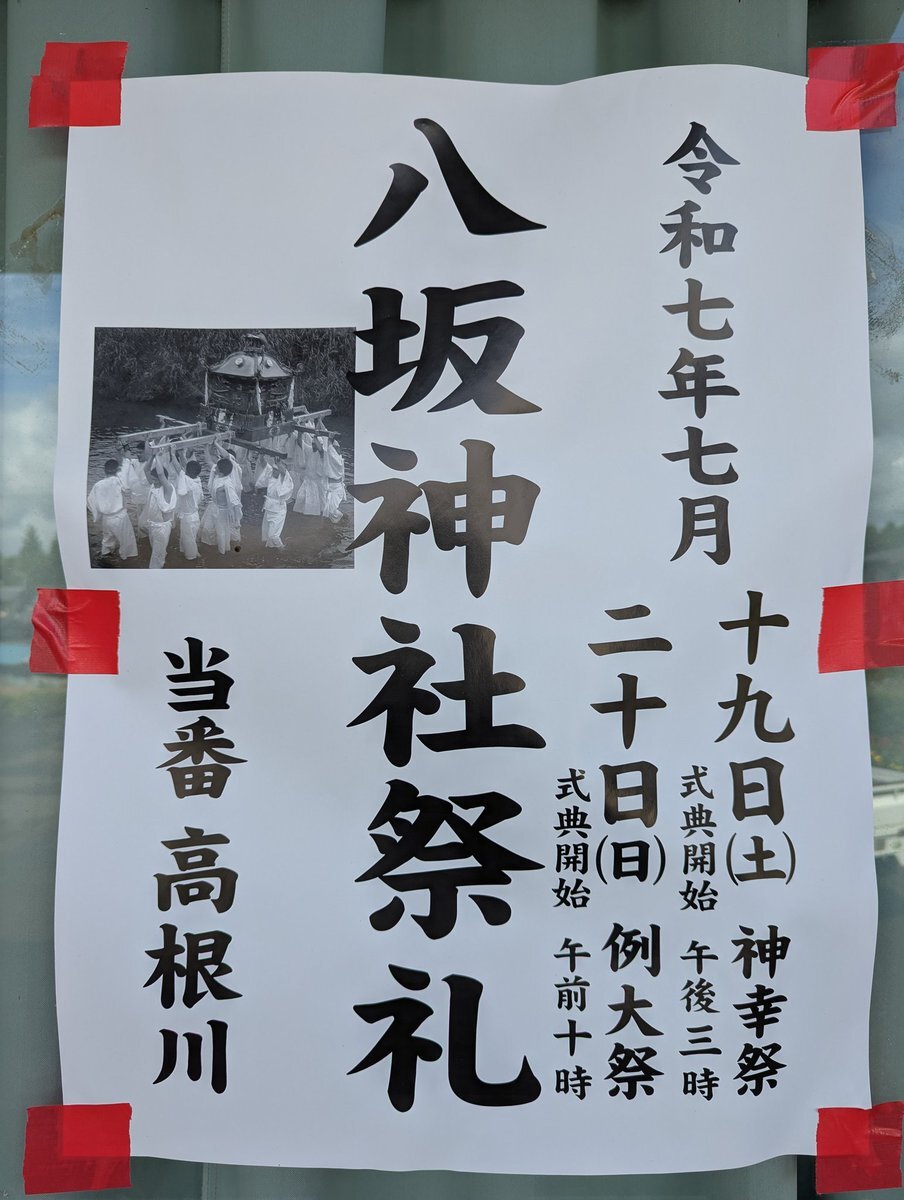 令和七年七月
十九日(土) 神幸祭
式典開始 午後三時
二十日(日) 例大祭
式典開始 午前十時
八坂神社祭礼
当番 高根川